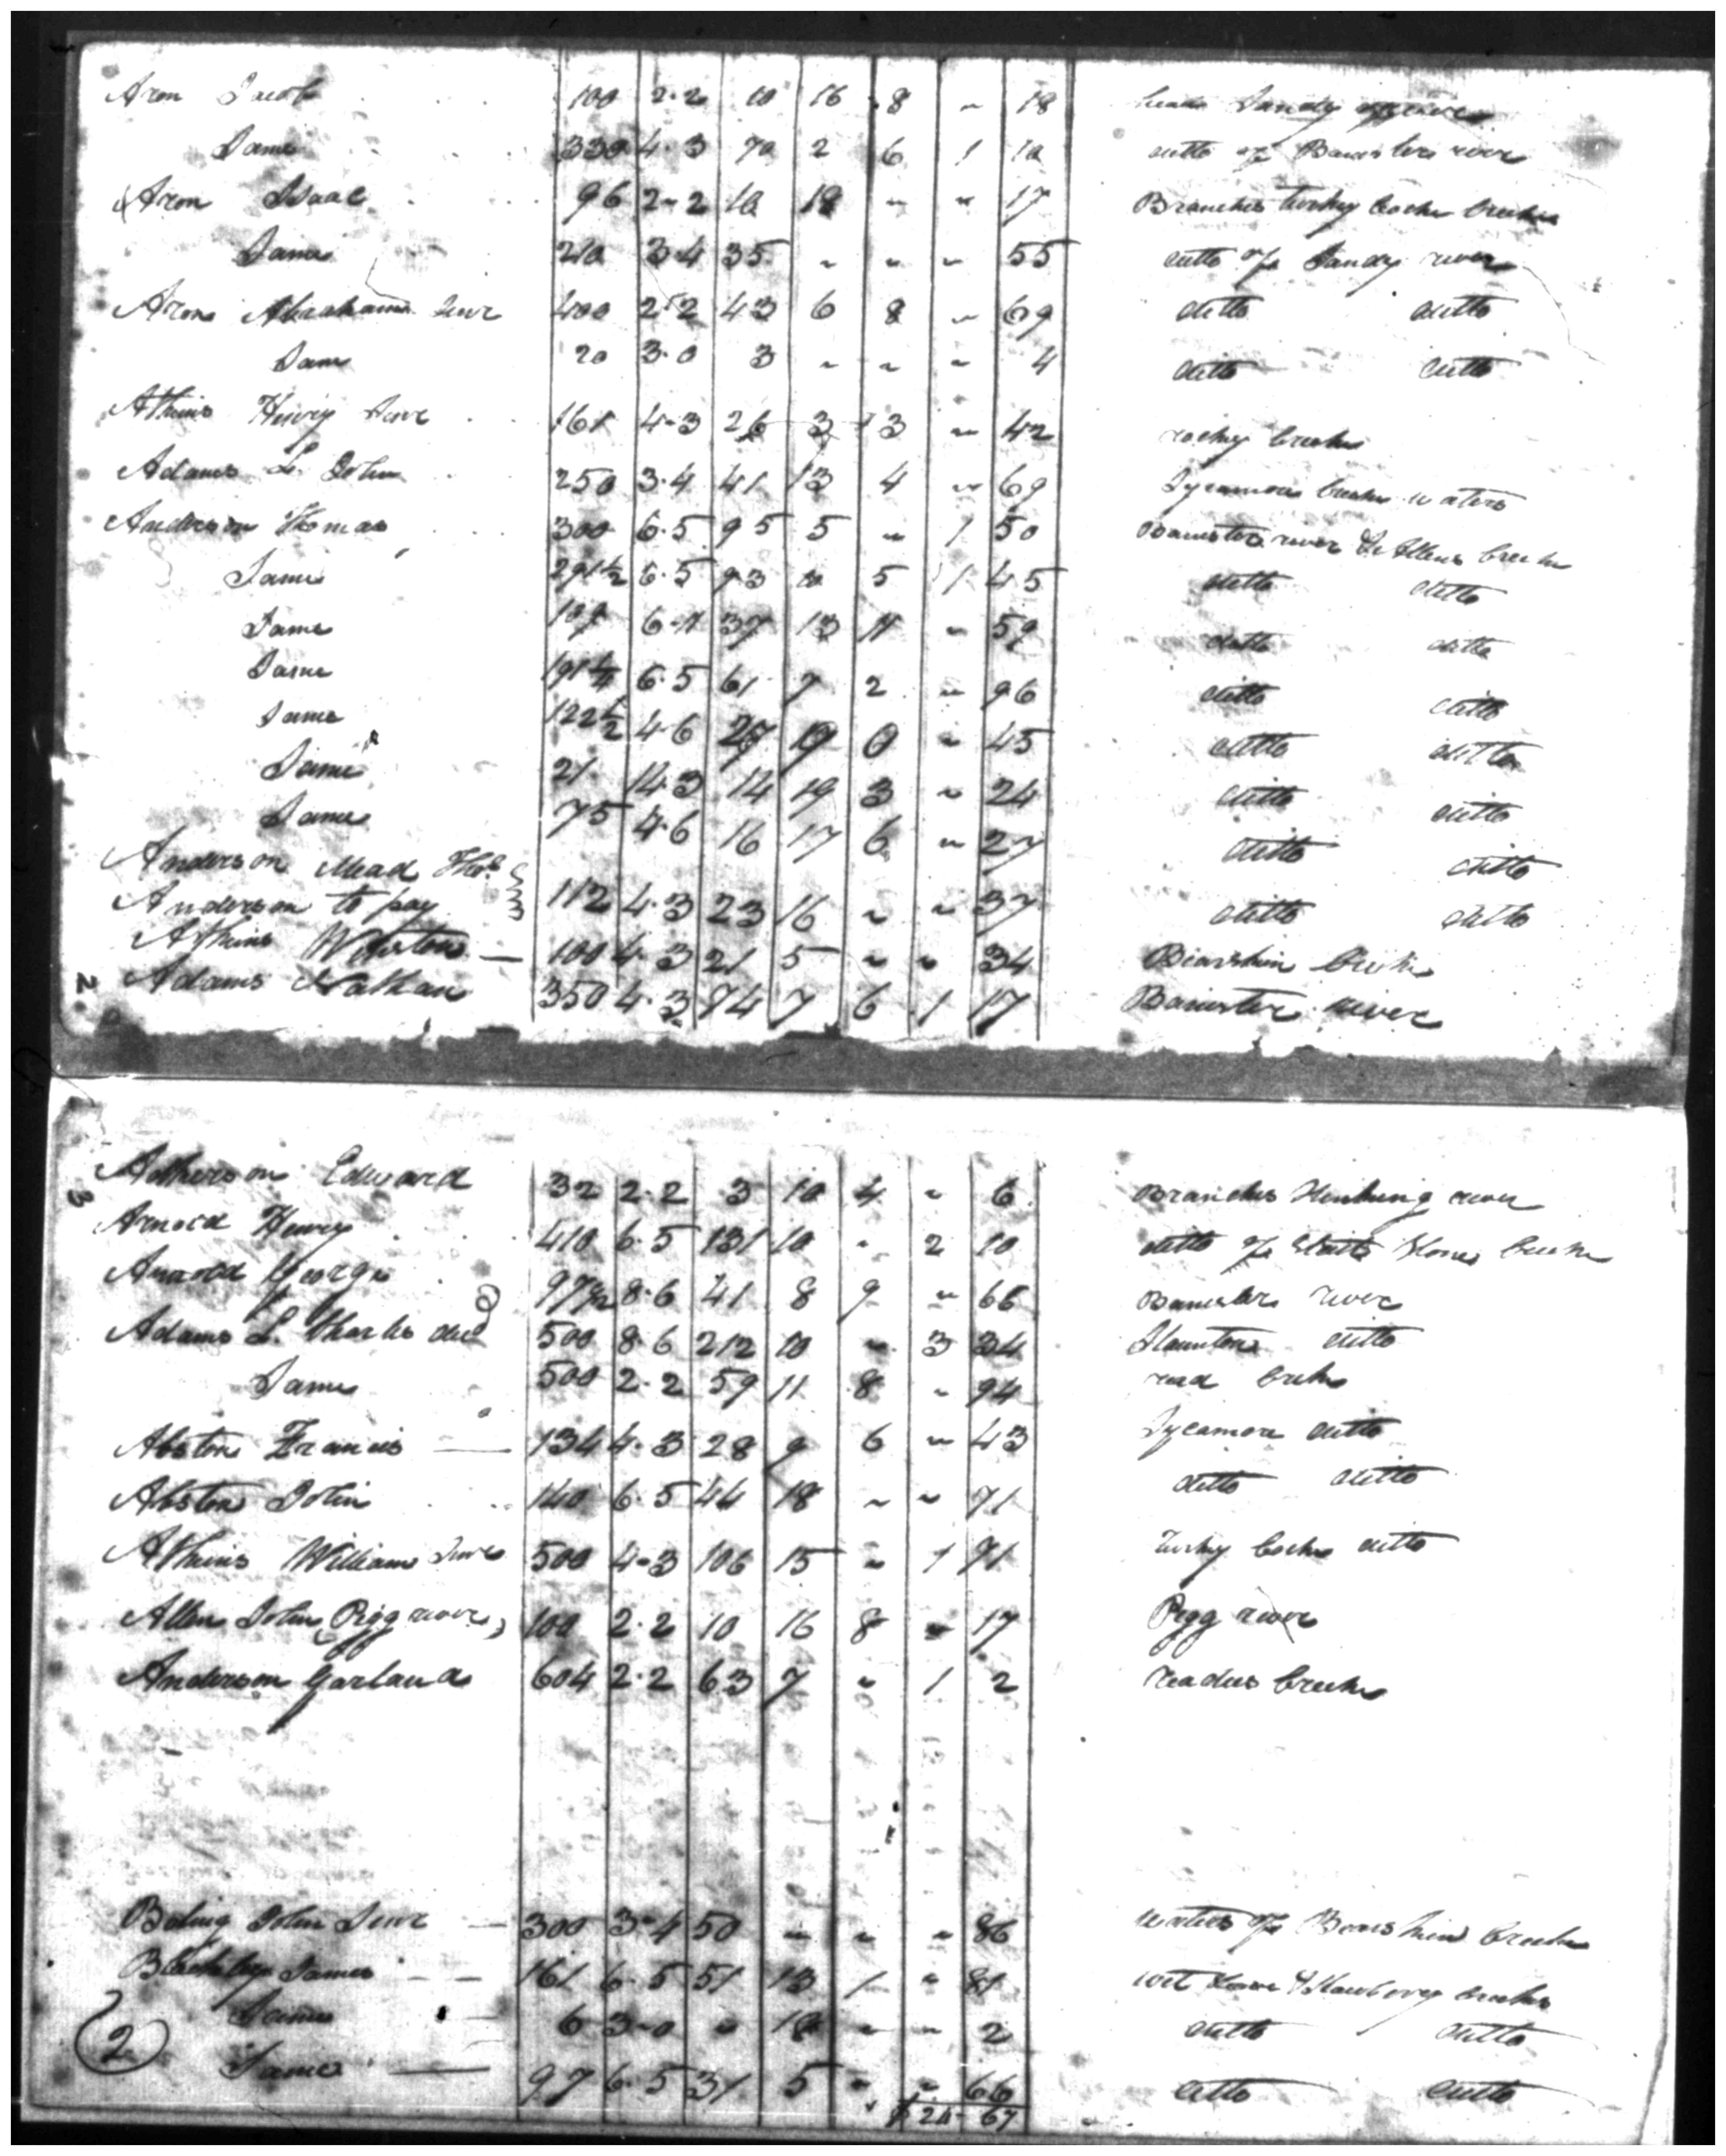 Aron Jacob 100 2.2 10 16 8 " 18 heads Sandy river
Same 330 4.3 70 2 6 1 10 ditto of Banister river
Aron Isaac 96 2.2 10 18 " " 17 Branches turkey Cocke Creeke
Same 210 3.4 35 " " " 55 ditto of Sandy river
Aron Abraham Senr 400 2.2 43 6 8 " 69 ditto ditto
Same 20 3.0 3 " " " 4 ditto ditto
Atkins Henry Senr 161 4.3 26 3 3 " 42 rocky Creeke
Adams L. John 250 3.4 41 13 4 " 69 Sycamore Creeke waters
Anderson Thomas 300 6.5 95 5 " 1 50 Banister river & Allens Creeke
Same 291 1/2 6.5 93 5 1 45 ditto ditto
Same 109 37 13 " 59 ditto ditto
Same 191 1/4 6.5 61 7 2 " 96 ditto ditto
Same 122 1/2 4.6 27 19 0 " 45 ditto ditto
Same 21 14.3 14 19 3 " 24 ditto ditto
Same 75 4.6 16 17 6 " 27 ditto ditto
Anderson Mead Thos.
Anderson to pay 112 4.3 23 16 " " 37 ditto ditto
Atkins Winston 100 4.3 21 5 " " 34 Bearskin Creeke
2 Adams Nathan 350 4.3 74 7 6 1 17 Banister river
3 Adkerson Edward 32 2.2 3 10 4 " 6 Branches river
Arnold Henry 410 6.5 131 10 " 2 10 ditto of Stone Creeke
Arnold George 97 1/2 8.6 41 8 9 " 66 Banister river
Adams L. Charles decd 500 8.6 212 10 " 3 34 Staunton ditto
Same 500 2.2 59 11 8 " 94 reed Creeke
Abston Francis 134 4.3 28 9 6 " 43 Sycamore ditto
Abston John 140 6.5 44 18 " " 71 ditto ditto
Atkins William Senr 500 4.3 106 15 " 1 71 Turkey Cocke ditto
Allen John (Pigg river) 100 2.2 10 16 8 " 17 Pigg river
Anderson Garland 604 2.2 63 7 " 1 2 Creeke
Boling John Senr 300 3.4 50 " " " 86 waters of Bearskin Creeke
James 161 6.5 51 13 1 " 81 & Strawberry Creeke
Same 6 3.0 " 18 " " 2 ditto ditto
2 Same 97 6.5 31 5 " " 66 ditto ditto
$ 24 67